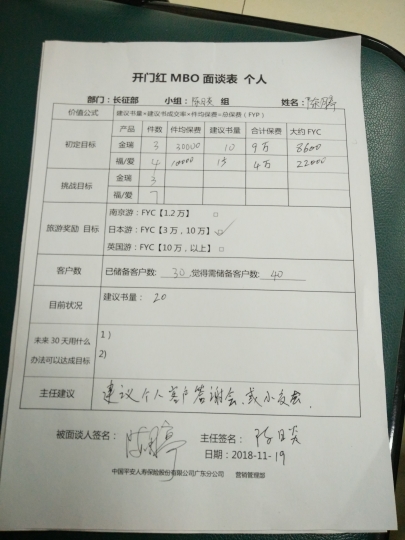 开门红 MBO 面谈表 个人
部门：长征部 小组： 组 姓名：
价值公式 建议书量*建议书成交率*件均保费=总保费（FYP）
初定目标 产品 件数 件均保费 建议书量 合计保费 大约 FYC
金瑞 3 30000 10 9万 8600
福/爱 4 10000 15 4万 22000
挑战目标 金瑞 3
福/爱 7
旅游奖励 目标 南京游：FYC【1.2 万】 □
日本游：FYC【3 万，10 万】 ☑
英国游：FYC【10 万，以上】 □
客户数 已储备客户数: 30 ,觉得需储备客户数: 40
目前状况 建议书量： 20
未来 30 天用什么
办法可以达成目标
1）
2)
主任建议 建议个人客户答谢会、或小
被面谈人签名： 主任签名：
日期：2018-11-19
中国平安人寿保险股份有限公司广东分公司 营销管理部